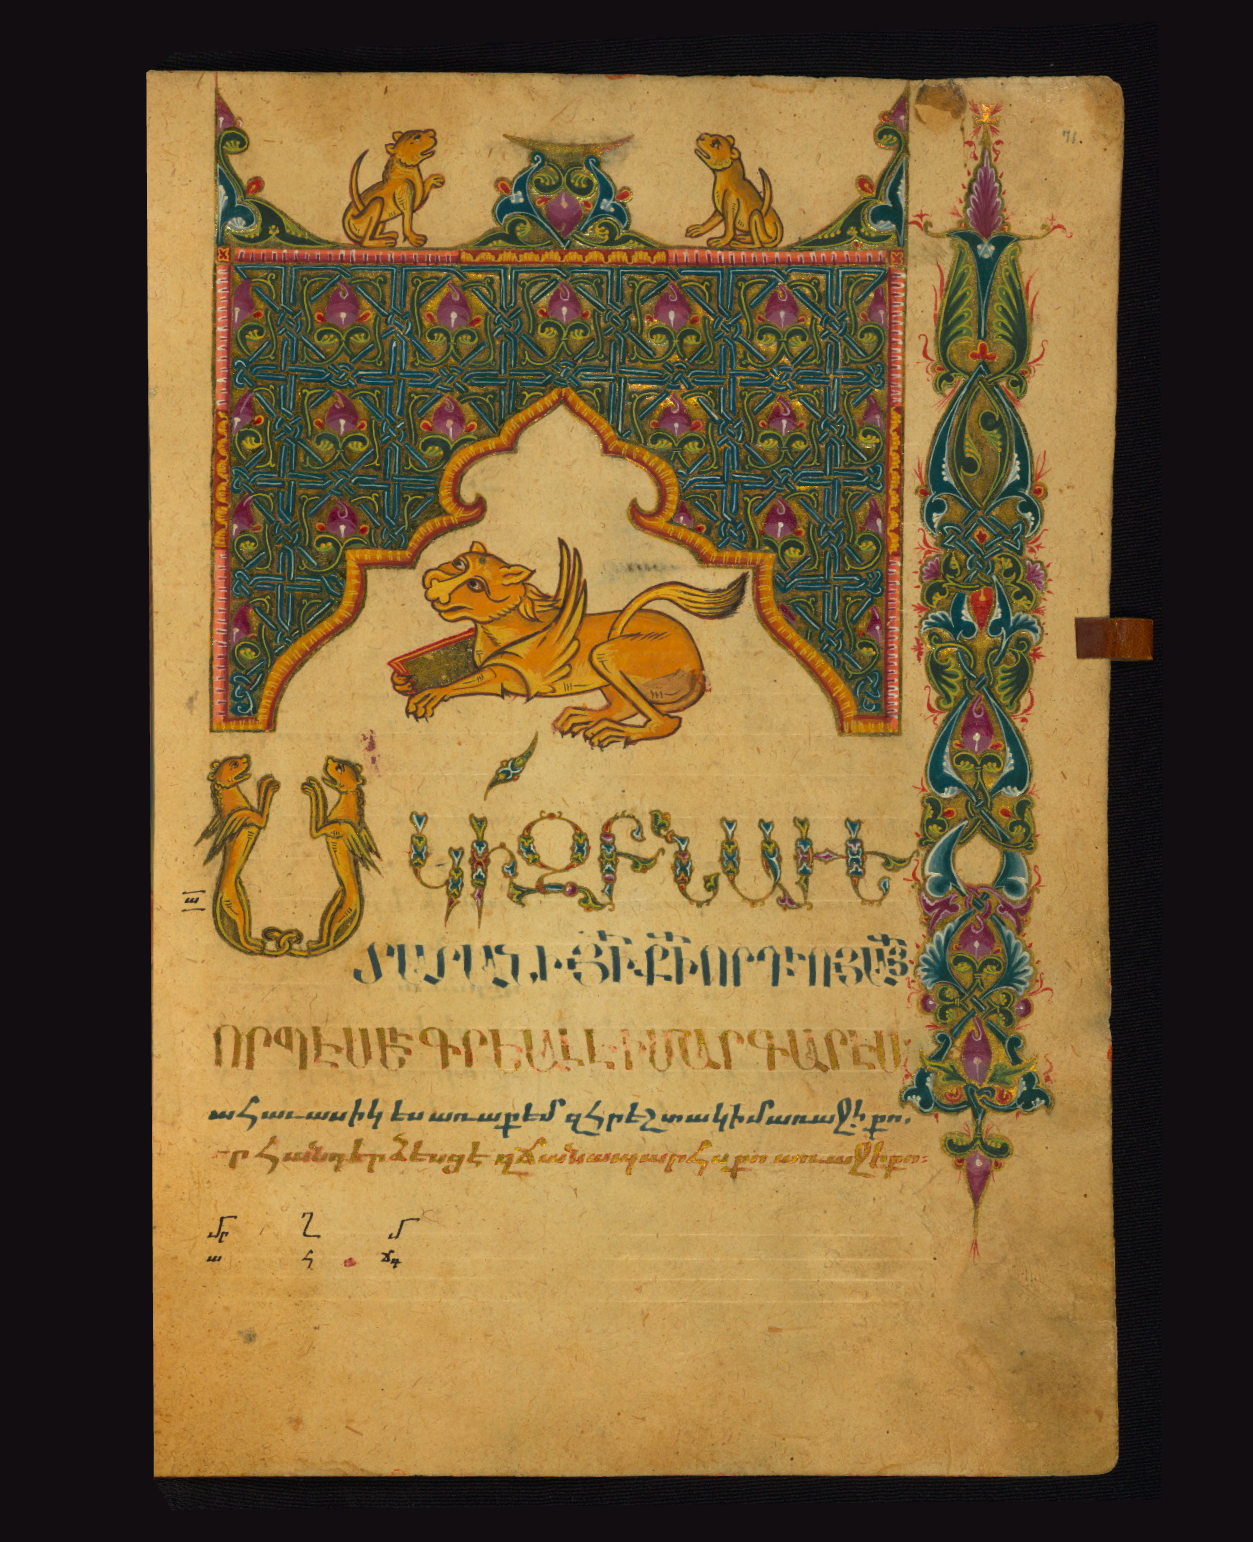 71.
ՍԿԻԶԲՆ ԱՒԵ
ՏԱՐԱՆԻ ՅԻ ՔԻ ՈՐԴԵՈՅ ԱՅ
ՈՐՊԷՍ ԵՒ ԳՐԵԱԼ Է Ի ՄԱՐԳԱՐԷՍ
ահաւասիկ ես առաքեմ զհրեշտակ իմ առաջի քո.
որ հանդերձեսցէ զճանապարհս քո առաջի քո: